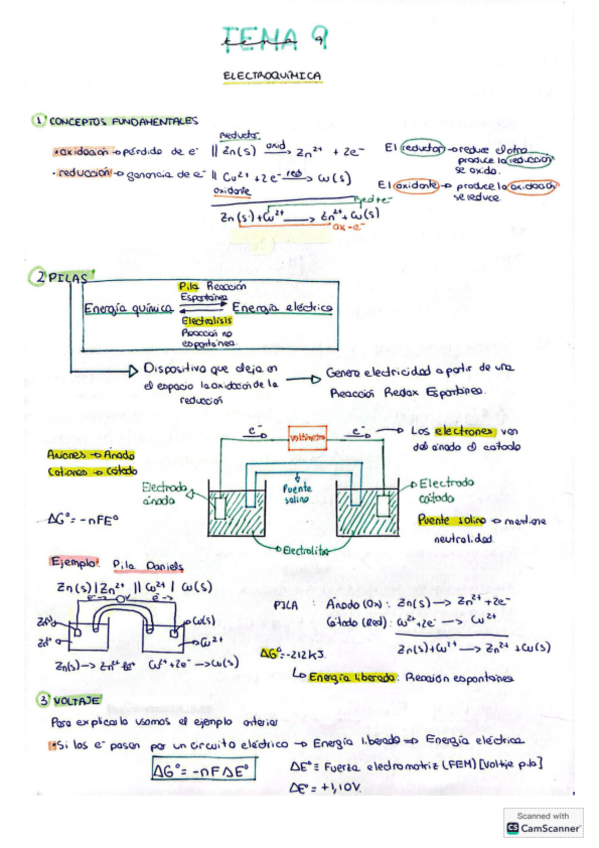 TEMA 9
ELECTROQUÍMICA
1 CONCEPTOS FUNDAMENTALES
reductor
• oxidación → pérdida de e⁻ || Zn(s) oxid→ Zn²⁺ + 2e⁻
• reducción → ganancia de e⁻ || Cu²⁺ + 2e⁻ red→ Cu(s)
oxidante
El reductor → reduce el otro
produce la reducción
se oxida.
El oxidante → produce la oxidación
se reduce.
red+e⁻
Zn(s) + Cu²⁺ → Zn²⁺ + Cu(s)
ox-e⁻
2 PILAS
Pila Reacción
Espontánea
Energía química ⇄ Energía eléctrica
Electrolisis
Reacción no
espontánea
Dispositivo que deja en
el espacio la oxidación de la
reducción
→ Genera electricidad a partir de una
Reacción Redox Espontánea.
e⁻ voltímetro e⁻ → Los electrones van
del ánodo al cátodo
Aniones → Ánodo
Cationes → Cátodo
Electrodo
ánodo
Puente
salino
Electrodo
cátodo
Puente salino → mantiene
neutralidad.
Electrolitos
ΔG° = -nFE°
Ejemplo: Pila Daniels
Zn(s) | Zn²⁺ || Cu²⁺ | Cu(s)
e⁻→ V e⁻→
Zn(s) Cu(s)
Zn²⁺ Cu²⁺
Zn(s) → Zn²⁺ + 2e⁻ Cu²⁺ + 2e⁻ → Cu(s)
PILA : Ánodo (Ox) : Zn(s) → Zn²⁺ + 2e⁻
Cátodo (Red) : Cu²⁺ + 2e⁻ → Cu²⁺
Zn(s) + Cu²⁺ → Zn²⁺ + Cu(s)
ΔG° = -212 kJ
↳ Energía liberada: Reacción espontánea
3 VOLTAJE
Para explicarlo usamos el ejemplo anterior
• Si los e⁻ pasan por un circuito eléctrico → Energía liberada ⇒ Energía eléctrica
ΔG° = -nFΔE°
ΔE° ≡ Fuerza electromotriz (FEM) [Voltaje pila]
ΔE° = +1,10V.
Scanned with
CS CamScanner